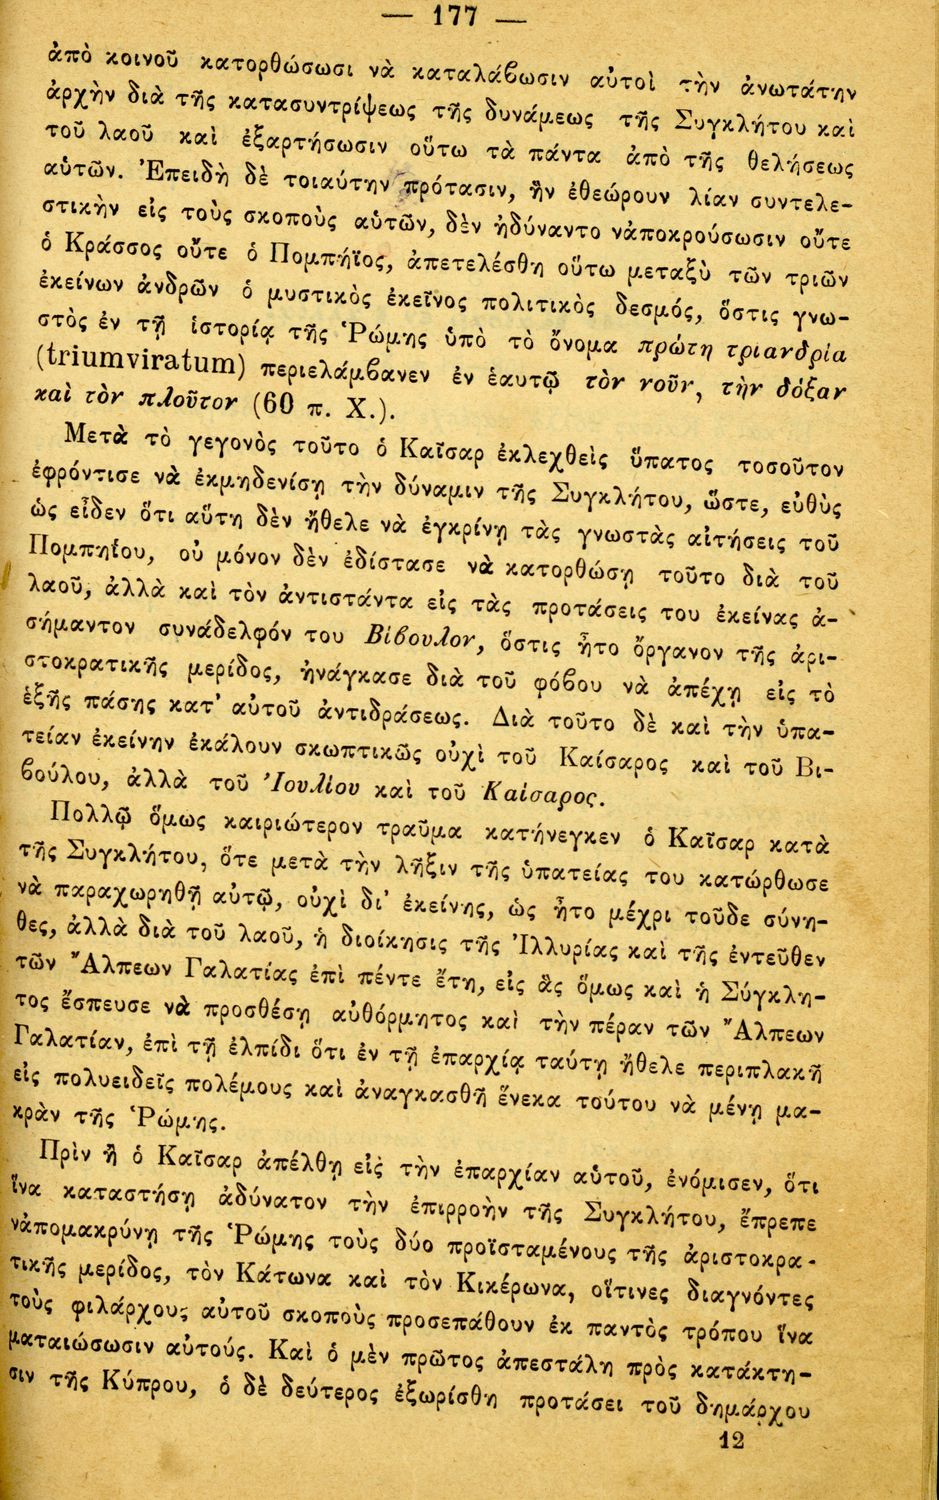 — 177 —
ἀπὸ κοινοῦ κατορθώσωσι νὰ καταλάβωσιν αὐτοὶ τὴν ἀνωτάτην
ἀρχὴν διὰ τῆς κατασυντρίψεως τῆς δυνάμεως τῆς Συγκλήτου καὶ
τοῦ λαοῦ καὶ ἐξαρτήσωσιν οὕτω τὰ πάντα ἀπὸ τῆς θελήσεως
αὑτῶν. Ἐπειδὴ δὲ τοιαύτην πρότασιν, ἣν ἐθεώρουν λίαν συντελε-
στικὴν εἰς τοὺς σκοποὺς αὑτῶν, δὲν ἠδύναντο νἀποκρούσωσιν οὔτε
ὁ Κράσσος οὔτε ὁ Πομπήϊος, ἀπετελέσθη οὕτω μεταξὺ τῶν τριῶν
ἐκείνων ἀνδρῶν ὁ μυστικὸς ἐκεῖνος πολιτικὸς δεσμός, ὅστις γνω-
στὸς ἐν τῇ ἱστορίᾳ τῆς Ῥώμης ὑπὸ τὸ ὄνομα πρώτη τριανδρία
(triumviratum) περιελάμβανεν ἐν ἑαυτῷ τὸν νοῦν, τὴν δόξαν
καὶ τὸν πλοῦτον (60 π. Χ.).
Μετὰ τὸ γεγονὸς τοῦτο ὁ Καῖσαρ ἐκλεχθεὶς ὕπατος τοσοῦτον
ἐφρόντισε νὰ ἐκμηδενίσῃ τὴν δύναμιν τῆς Συγκλήτου, ὥστε, εὐθὺς
ὡς εἶδεν ὅτι αὕτη δὲν ἤθελε νὰ ἐγκρίνῃ τὰς γνωστὰς αἰτήσεις τοῦ
Πομπηΐου, οὐ μόνον δὲν ἐδίστασε νὰ κατορθώσῃ τοῦτο διὰ τοῦ
λαοῦ, ἀλλὰ καὶ τὸν ἀντιστάντα εἰς τὰς προτάσεις του ἐκείνας ἀ-
σήμαντον συνάδελφόν του Βίβουλον, ὅστις ἦτο ὄργανον τῆς ἀρι-
στοκρατικῆς μερίδος, ἠνάγκασε διὰ τοῦ φόβου νὰ ἀπέχῃ εἰς τὸ
ἑξῆς πάσης κατ' αὐτοῦ ἀντιδράσεως. Διὰ τοῦτο δὲ καὶ τὴν ὑπα-
τείαν ἐκείνην ἐκάλουν σκωπτικῶς οὐχὶ τοῦ Καίσαρος καὶ τοῦ Βι-
βούλου, ἀλλὰ τοῦ Ἰουλίου καὶ τοῦ Καίσαρος.
Πολλῷ ὅμως καιριώτερον τραῦμα κατήνεγκεν ὁ Καῖσαρ κατὰ
τῆς Συγκλήτου, ὅτε μετὰ τὴν λῆξιν τῆς ὑπατείας του κατώρθωσε
νὰ παραχωρηθῇ αὐτῷ, οὐχὶ δι' ἐκείνης, ὡς ἦτο μέχρι τοῦδε σύνη-
θες, ἀλλὰ διὰ τοῦ λαοῦ, ἡ διοίκησις τῆς Ἰλλυρίας καὶ τῆς ἐντεῦθεν
τῶν Ἄλπεων Γαλατίας ἐπὶ πέντε ἔτη, εἰς ἃς ὅμως καὶ ἡ Σύγκλη-
τος ἔσπευσε νὰ προσθέσῃ αὐθόρμητος καὶ τὴν πέραν τῶν Ἄλπεων
Γαλατίαν, ἐπὶ τῇ ἐλπίδι ὅτι ἐν τῇ ἐπαρχίᾳ ταύτῃ ἤθελε περιπλακῆ
εἰς πολυειδεῖς πολέμους καὶ ἀναγκασθῆ ἕνεκα τούτου νὰ μένῃ μα-
κρὰν τῆς Ῥώμης.
Πρὶν ἢ ὁ Καῖσαρ ἀπέλθῃ εἰς τὴν ἐπαρχίαν αὑτοῦ, ἐνόμισεν, ὅτι
ἵνα καταστήσῃ ἀδύνατον τὴν ἐπιρροὴν τῆς Συγκλήτου, ἔπρεπε
νἀπομακρύνῃ τῆς Ῥώμης τοὺς δύο προϊσταμένους τῆς ἀριστοκρα-
τικῆς μερίδος, τὸν Κάτωνα καὶ τὸν Κικέρωνα, οἵτινες διαγνόντες
τοὺς φιλάρχους αὐτοῦ σκοποὺς προσεπάθουν ἐκ παντὸς τρόπου ἵνα
ματαιώσωσιν αὐτούς. Καὶ ὁ μὲν πρῶτος ἀπεστάλη πρὸς κατάκτη-
σιν τῆς Κύπρου, ὁ δὲ δεύτερος ἐξωρίσθη προτάσει τοῦ δημάρχου
12